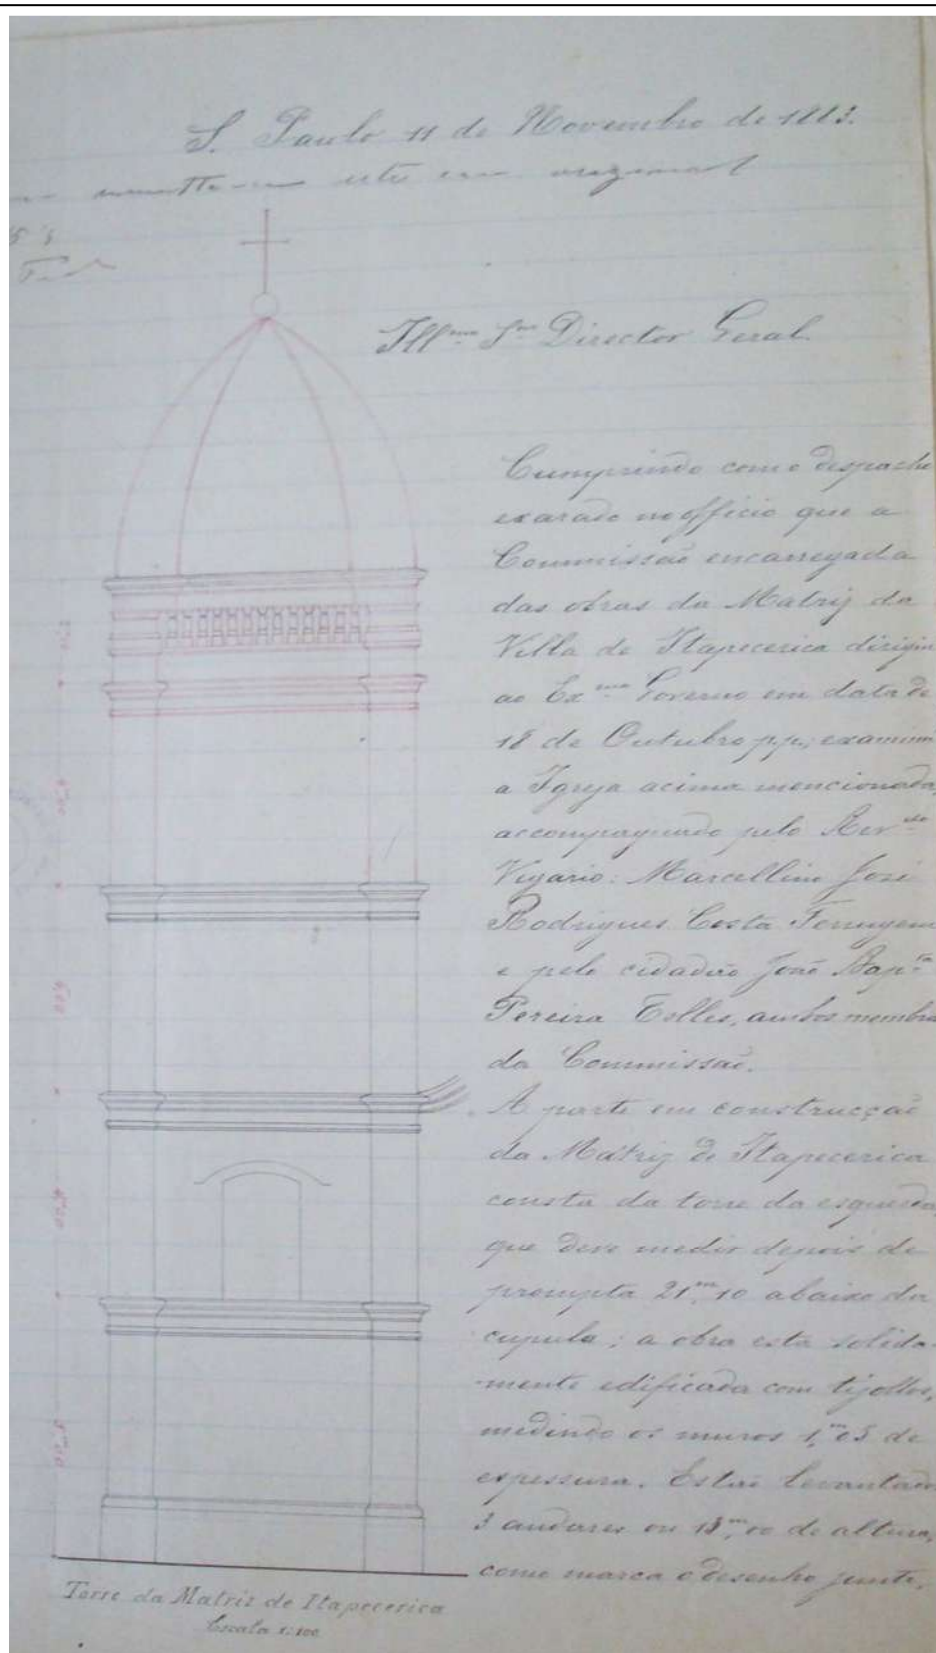 S. Paulo 11 de Novembro de 1883.
este em original
Ill.mo Snr. Director Geral.
Cumprindo com o despacho
exarado no officio que a
Commissão encarregada
das obras da Matriz da
Villa de Itapecerica dirigiu
ao Ex.mo Governo em data de
18 de Outubro p.p., examinei
a Igreja acima mencionada,
accompagnado pelo Rev.do
Vigario: Marcellino José
Rodrigues Costa Ferrugem
e pelo cidadão João Bap.ta
Pereira Telles, ambos membros
da Commissão.
A parte em construcção
da Matriz de Itapecerica
consta da torre da esquerda,
que deve medir depois de
prompta 21,m10 abaixo da
cupula; a obra esta solida-
mente edificada com tijollos,
medindo os muros 1,m05 de
espessura. Estão levantados
3 andares ou de altura,
como marca o desenho junto.
Torre da Matriz de Itapecerica
Escala 1:100